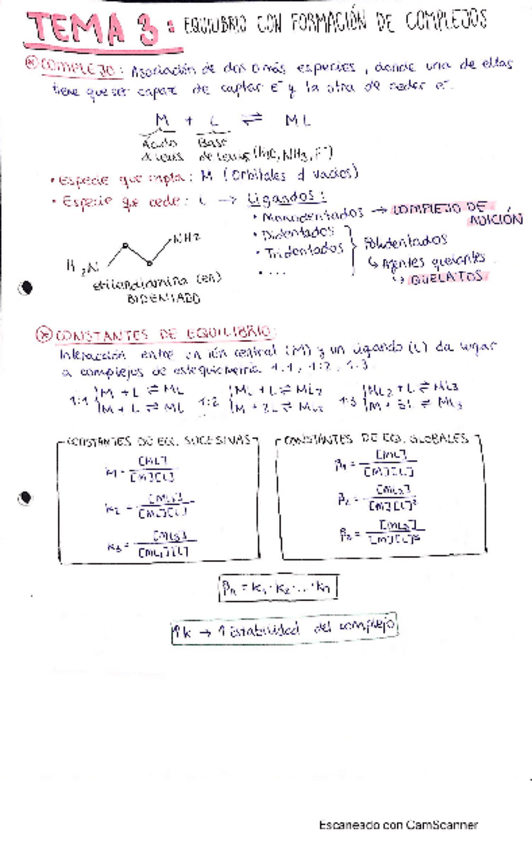 TEMA 3: EQUILIBRIO CON FORMACIÓN DE COMPLEJOS
COMPLEJO: Asociación de dos o más especies, donde una de ellas
tiene que ser capaz de captar e⁻ y la otra de ceder e⁻.
M + L ⇌ ML
Ácido Base
de Lewis de Lewis (H₂O, NH₃, F⁻)
• Especie que capta: M (Orbitales d vacíos)
• Especie que cede: L → Ligandos:
• Monodentados → COMPLEJO DE ADICIÓN
• Didentados
• Tridentados
• ....
Polidentados
↳ Agentes quelantes
↳ QUELATOS
H₂N NH₂
etilendiamina (en)
BIDENTADO
CONSTANTES DE EQUILIBRIO:
Interacción entre un ión central (M) y un ligando (L) da lugar
a complejos de estequiometría 1:1, 1:2, 1:3
1:1 M + L ⇌ ML 1:2 ML + L ⇌ ML₂ 1:3 ML₂ + L ⇌ ML₃
M + L ⇌ ML M + 2L ⇌ ML₂ M + 3L ⇌ ML₃
CONSTANTES DE EQ. SUCESIVAS
K₁ = [ML] / [M][L]
K₂ = [ML₂] / [ML][L]
K₃ = [ML₃] / [ML₂][L]
CONSTANTES DE EQ. GLOBALES
β₁ = [ML] / [M][L]
β₂ = [ML₂] / [M][L]²
β₃ = [ML₃] / [M][L]³
βn = K₁ · K₂ · ... · Kn
↑K → ↑ Estabilidad del complejo
Escaneado con CamScanner